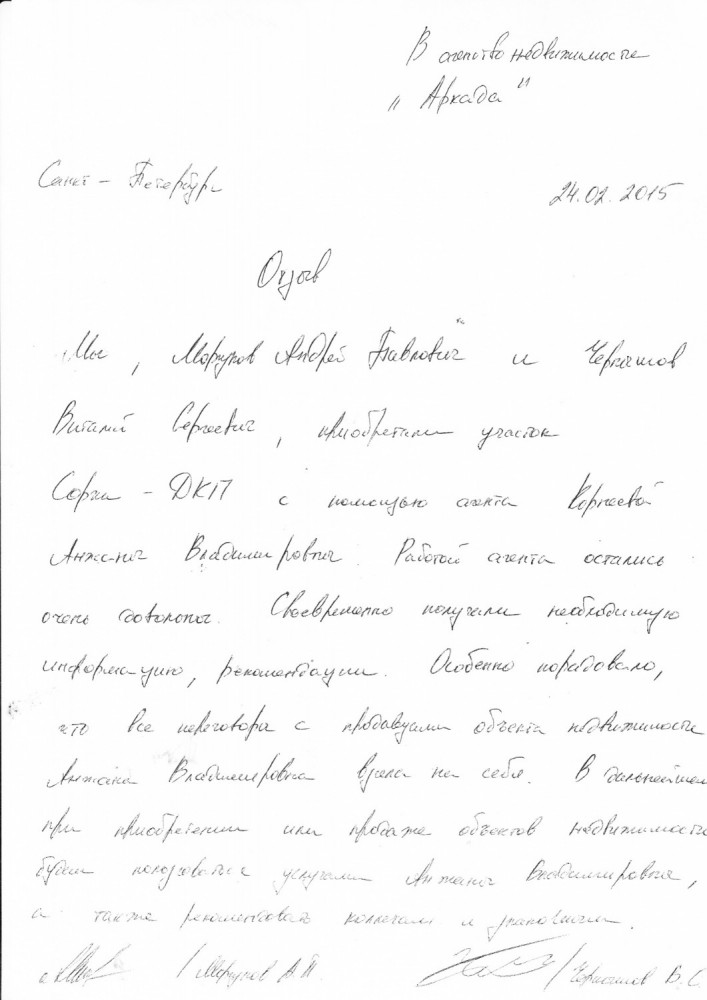 В агентство недвижимости
„Аркада"
Санкт-Петербург
24.02.2015
Отзыв
Мы, Моргунов Андрей Павлович и
Виталий Сергеевич, приобретали участок
- ДКП с помощью агента Корнеевой
Анжелы Владимировны. Работой агента остались
очень довольны. Своевременно получали необходимую
информацию, рекомендации. Особенно порадовало,
что все переговоры с продавцами объекта недвижимости
Владимировна взяла на себя. В дальнейшем
при приобретении или продаже объектов недвижимости
будем пользоваться услугами Владимировны,
а также рекомендовать коллегам и знакомым.
/ Моргунов А П
/